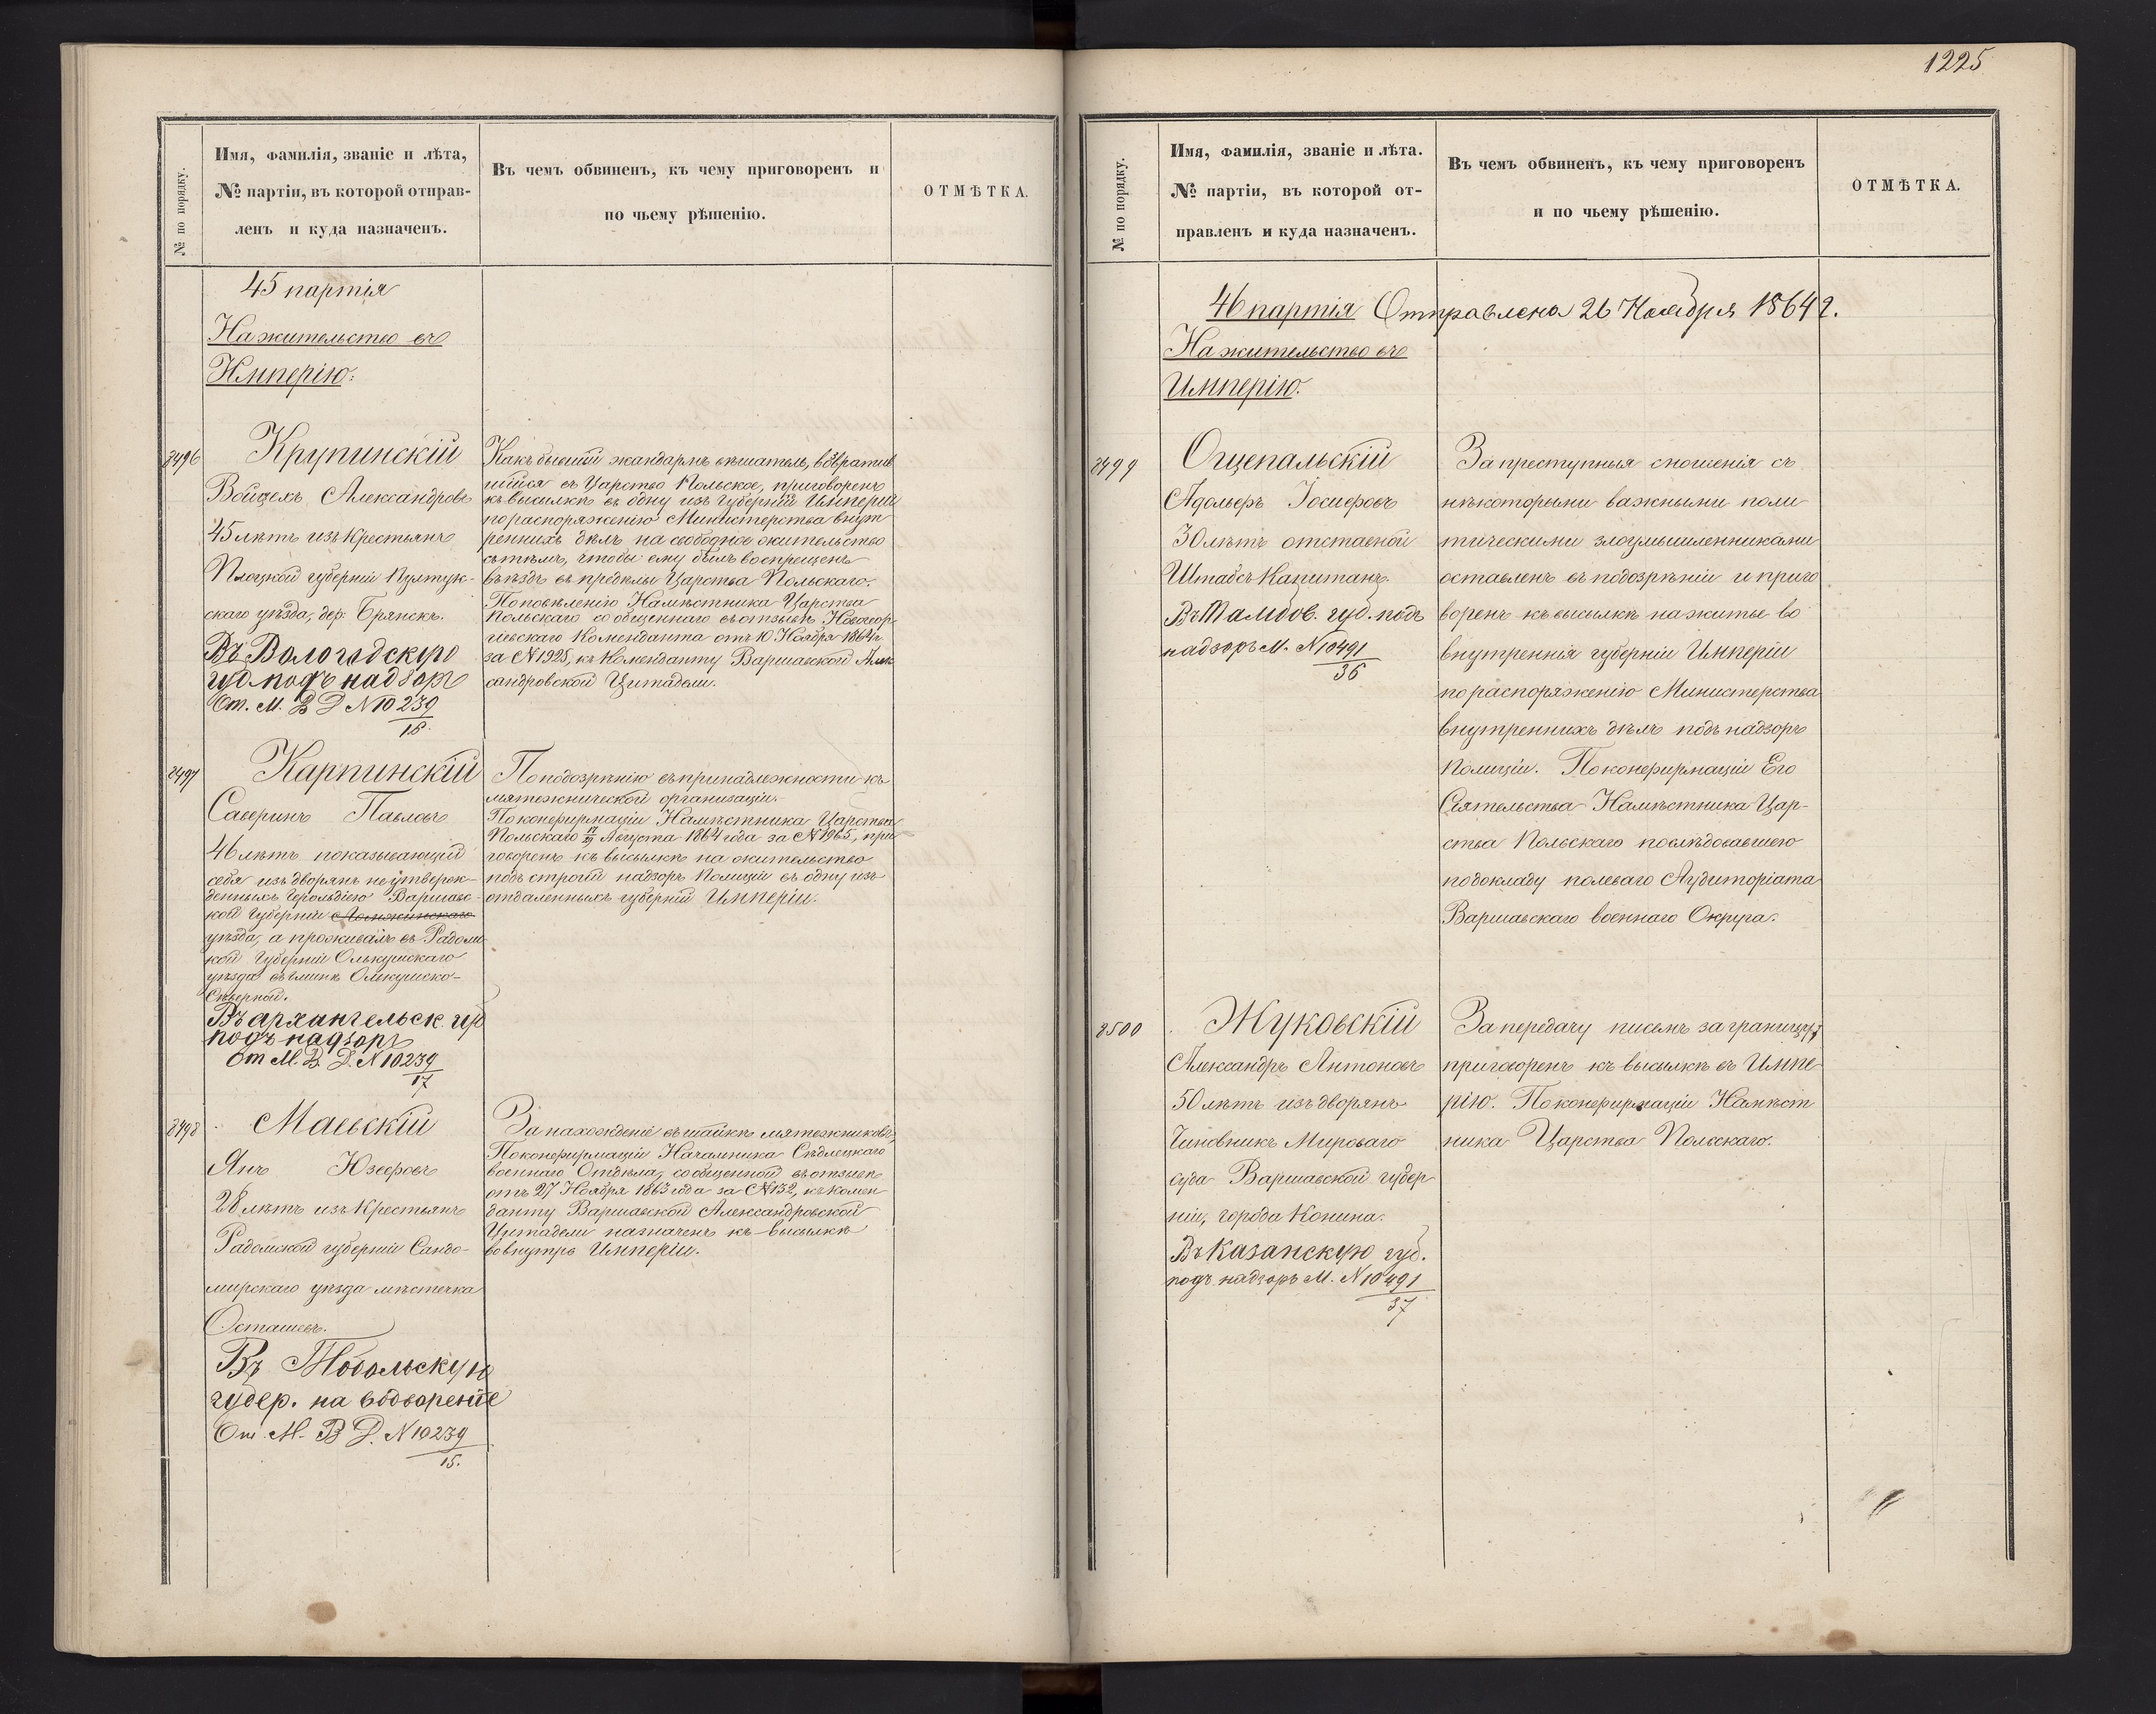 1225
№ по порядку.
Имя, фамилія, званіе и лѣта,
№ партіи, въ которой отправ-
ленъ и куда назначенъ.
Въ чемъ обвиненъ, къ чему приговоренъ и
по чьему рѣшенію.
ОТМѢТКА.
45 партія
На жительство въ
Имперію:
8496
Крупинскій
Войцехъ Александровъ
45 лѣтъ изъ Крестьянъ
Плоцкой губерніи Пултус-
скаго уѣзда, дер: Брянскъ.
Въ Вологодскую
губ подъ надзоръ
От. М. В Д N 10 239
18.
Какъ бывшій жандармъ вѣшатель, возвратив
шійся въ Царство Польское, приговоренъ
къ высылкѣ въ одну изъ Губерній Имперіи
по распоряженію Министерства внут
реннихъ дѣлъ на свободное жительство
съ тѣмъ, чтобы ему былъ воспрещенъ
въѣздъ въ предѣлы Царства Польскаго.
По повѣленію Намѣстника Царства
Польскаго сообщеннаго въ отзывѣ Новогеор-
гіевскаго Коменданта отъ 10 Ноября 1864 г.
за N 1925, къ Коменданту Варшавской Алек
сандровской Цитадели.
8497
Карпинскій
Саверинъ Павловъ
46 лѣтъ показывающій
себя изъ дворянъ не утверж-
денныхъ Герольдіею Варшавс-
кой Губерніи
уѣзда, а проживалъ въ Радомс-
кой Губерніи Олькушскаго
уѣзда въ гминѣ Олькушско-
Сѣверной.
Въ архангельск. губ
подъ надзоръ
От М. В. Д. N 10239
17
По подозрѣнію въ принадлежности къ
мятежнической организаціи.
По конфирмаціи Намѣстника Царства
Польскаго Августа 1864 года за N 1965, при
говоренъ къ высылкѣ на жительство
подъ строгій надзоръ Полиціи въ одну изъ
отдаленныхъ губерній Имперіи.
8498
Маевскій
Янъ Юзефовъ
28 лѣтъ изъ Крестьянъ
Радомской губерніи Сандо-
мирскаго уѣзда мѣстечка
Осташевъ.
Въ Тобольскую
губер. на водвореніе
От М. В Д. N 10239
15.
За нахожденіе въ шайкѣ мятежниковъ
По конфирмаціи Начальника Сѣдлецкаго
военнаго Отдѣла, сообщенной въ отзывѣ
отъ 27 Ноября 1863 года за N 132, къ Комен
данту Варшавской Александровской
Цитадели назначенъ къ высылкѣ
во внутрь Имперіи.
№ по порядку.
Имя, фамилія, званіе и лѣта.
№ партіи, въ которой от-
правленъ и куда назначенъ.
Въ чемъ обвиненъ, къ чему приговоренъ
и по чьему рѣшенію.
ОТМѢТКА.
46 партія Отправлена 26 Ноября 1864 г.
На жительство въ
Имперію.
8499
Оцепальскій
Адольфъ Іосифовъ
30 лѣтъ отставной
Штабсъ Капитанъ.
Въ Тамбов. губ. подъ
надзоръ М. N 10491
36
За преступныя сношенія съ
нѣкоторыми важными поли-
тическими злоумышленниками
оставленъ въ подозрѣніи и приго
воренъ къ высылкѣ на житье во
внутреннія губерніи Имперіи
по распоряженію Министерства
внутреннихъ дѣлъ подъ надзоръ
Полиціи. По конфирмаціи Его
Сіятельства Намѣстника Цар-
ства Польскаго послѣдовавшею
по докладу полеваго Аудиторіата
Варшавскаго военнаго Округа.
8500
Жуковскій
Александръ Антоновъ
50 лѣтъ изъ дворянъ
Чиновникъ Мироваго
суда Варшавской губер
ніи, города Конина.
Въ Казанскую губ.
подъ надзоръ М. N 10491
37
За передачу писемъ за границу,
приговоренъ къ высылкѣ въ Импе
рію. По конфирмаціи Намѣст
ника Царства Польскаго.